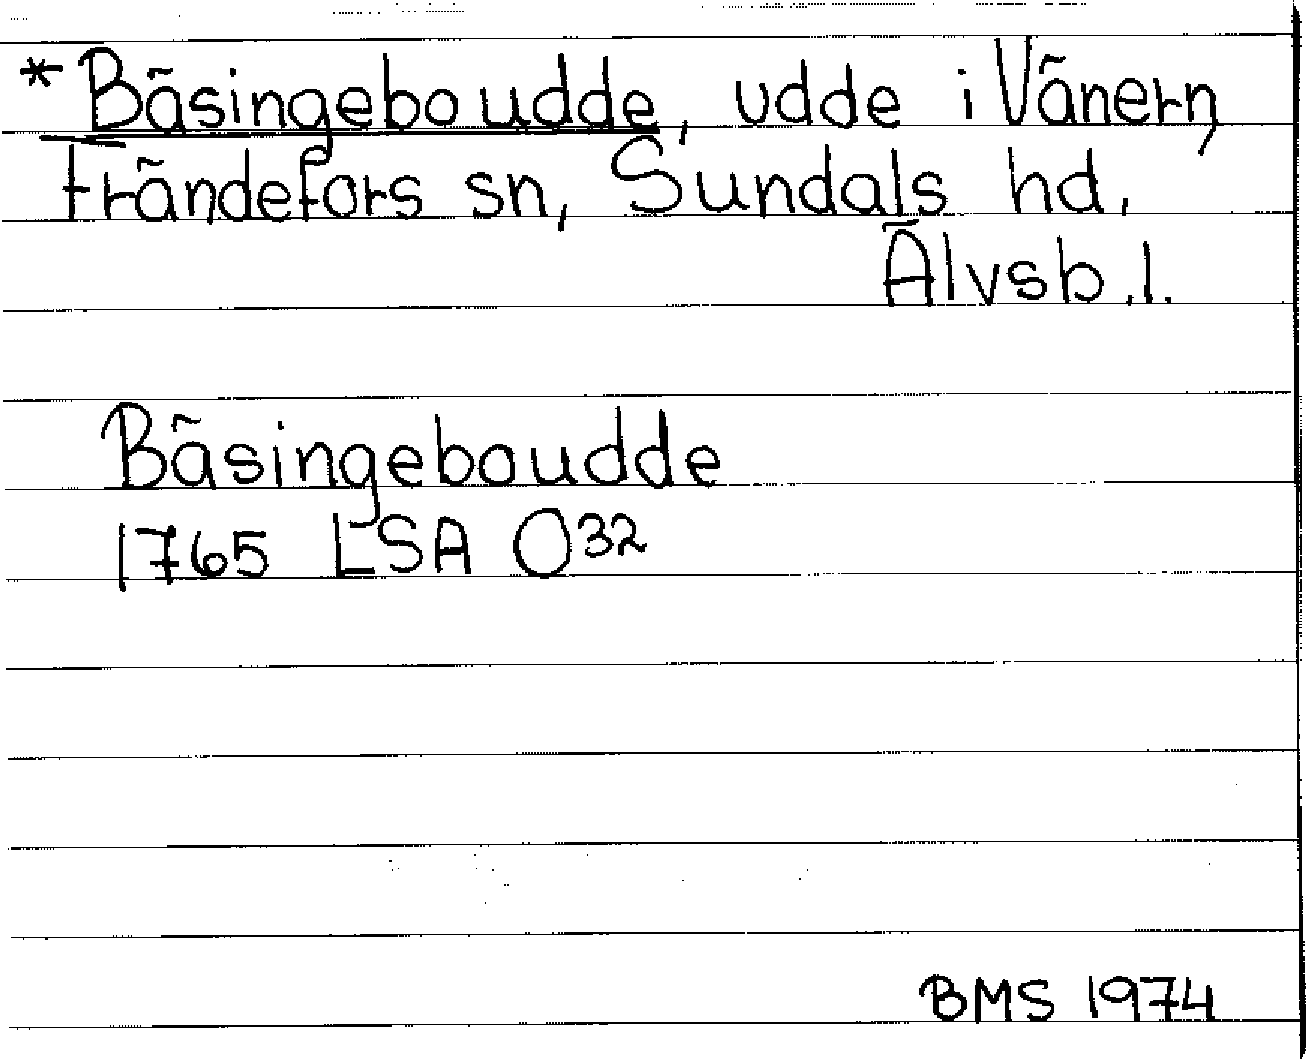 *Bäsingeboudde, udde i Vänern,
Frändefors sn, Sundals hd,
Älvsb.l.
Bäsingeboudde
1765 LSA O32
BMS 1974